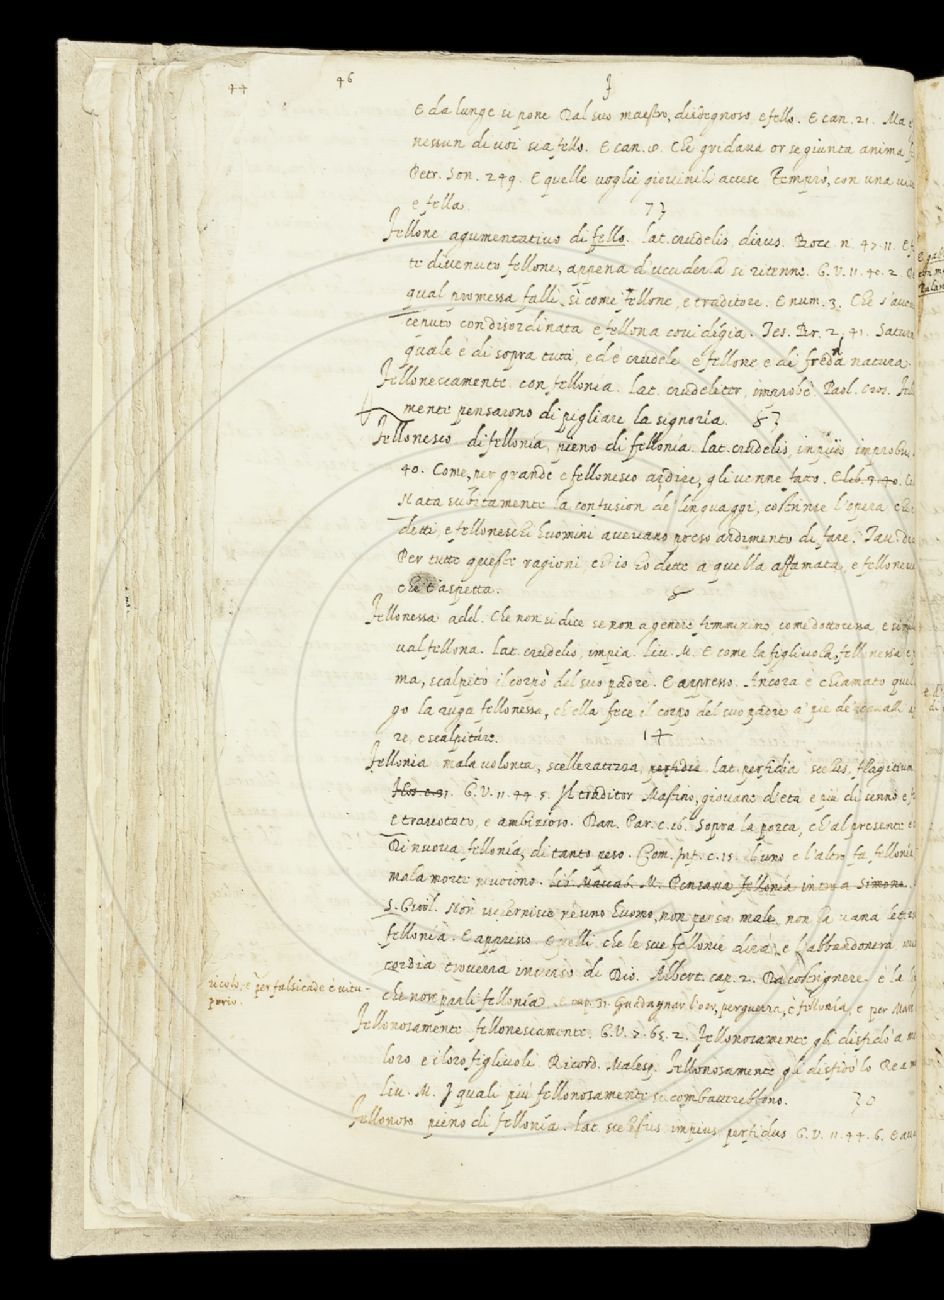 44 46 f
E da lunge si pone Dal suo maestro, disdegnoso e fello. E can. 21. Ma
nessun di voi sia fello. E can. 8. Che gridava or se giunta anima
Petr. Son. 249. E quelle voglie giovinili accese Temprò, con una
e fella.
Fellone agumentativo di fello. lat. crudelis, dirus. Bocc. n. 47. 11.
te divenuto fellone, appena d'ucciderla si ritenne. G. V. 11. 40. 2.
qual promessa fallì, sì come fellone, e traditore. E num. 3. Che s'avea
tenuto con disordinata e fellona covidigia. Tes. Br. 2, 41. Saturno
quale è di sopra tutti, ed è crudele e fellone e di fredda natura.
Fellonescamente con fellonia. Lat. crudeliter, improbè Paol. Oros.
mente pensarono di pigliare la signoria.
Fellonesco di fellonia, pieno di fellonia. Lat. crudelis, impius improbus.
40. Come, per grande e fellonesco ardire, gli venne fatto.
Nata subitamente la confusion de' linguaggi, costrinse l'opera
detti, e felloneschi huomini avevano preso ardimento di fare.
Per tutte queste ragioni, ch'io ho dette a quella affamata, e
che t'aspetta.
Fellonessa add. Che non si dice se non a genere femminino, come dottoressa, e
val fellona. Lat. crudelis, impia. Liv. M. E come la figlivola, fellonessa
ma, scalpitò il corpo del suo padre. E appresso. Ancora è chiamato quel
go la ruga fellonessa, ch'ella fece il corpo del suo padre a' piè de' cavalli
re, e scalpitare.
Fellonia mala volontà, scelleratezza, perfidia lat. perfidia scelus, flagitium
G. V. 11. 44. 5. Il traditor Mastino, giovane d'età e più di senno
e traviotato, e ambizioso. Dan. Par. c. 16. Sopra la porta, ch'al presente
Di nuova fellonia, di tanto peso. Com. Inf. c. 15. l'uno e l'altro fa fellonia
mala morte muoiono. Lib. Maccab. M. Pensava fellonia intra Simone
Non ischernisce neuno huomo, non pensa male, non ha vana
fellonia. E appresso. Quelli che le sue fellonie dirà, e l'abbandonerà
cordia troverrà inverso di Dio. Albert. cap. 2. Da costrignere è la
ricolo, e per falsitade è vitu-
perio.
che non parli fellonia. E cap. 37. Guadagnar l'oer, per guerra, è fellonia, e per
Fellonosamente fellonescamente. G. V. 7. 65. 2. Fellonosamente gli disfidò a
loro e i loro figlivoli. Ricord. Malesp. Fellonosamente gli disfidò lo Re
Liv. M. I quali più fellonosamente si combatterebbono.
Fellonoso pieno di fellonia. Lat. scelestus impius, perfidus G. V. 11. 44. 6.